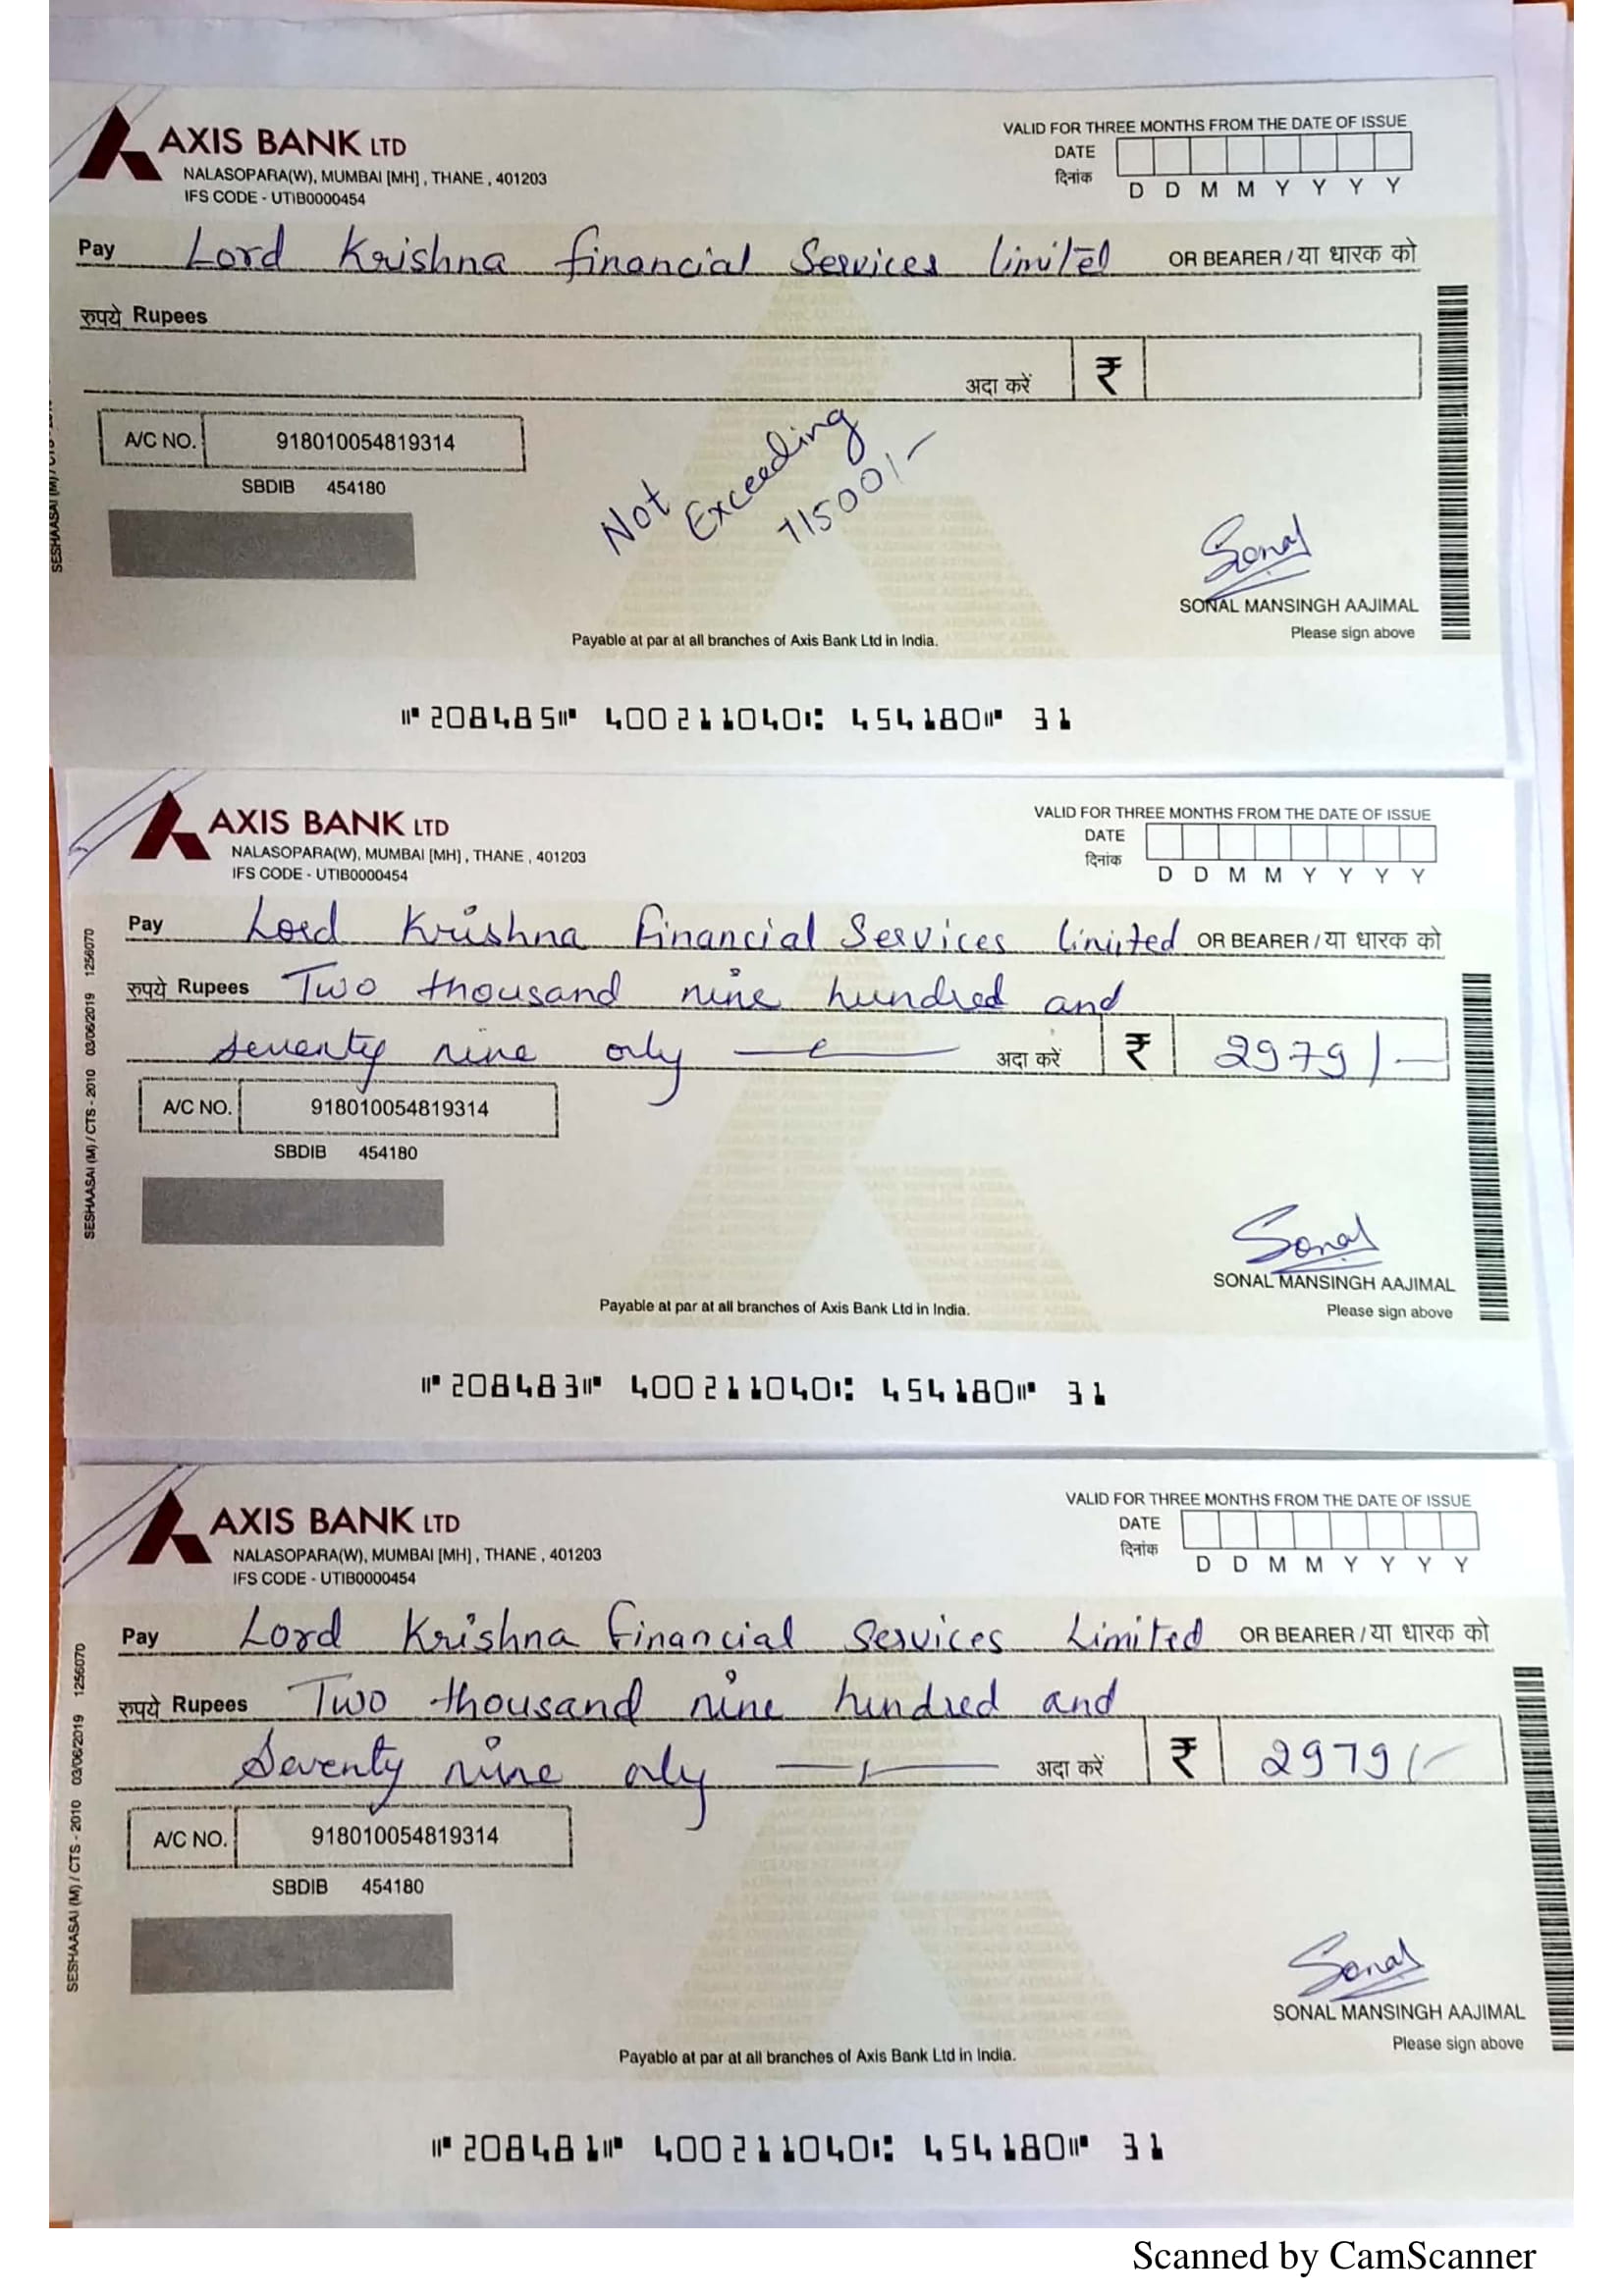 AXIS BANK LTD
NALASOPARA(W), MUMBAI [MH] , THANE , 401203
IFS CODE - UTIB0000454
VALID FOR THREE MONTHS FROM THE DATE OF ISSUE
DATE
दिनांक
D D M M Y Y Y Y
Pay Lord Krishna financial Services limited OR BEARER / या धारक को
रुपये Rupees
अदा करें ₹
A/C NO. 918010054819314
SBDIB 454180
Not
Exceeding
71500/-
Sonal
SONAL MANSINGH AAJIMAL
Please sign above
Payable at par at all branches of Axis Bank Ltd in India.
⑈208485⑈ 400211040⑆ 454180⑈ 31
AXIS BANK LTD
NALASOPARA(W), MUMBAI [MH] , THANE , 401203
IFS CODE - UTIB0000454
VALID FOR THREE MONTHS FROM THE DATE OF ISSUE
DATE
दिनांक
D D M M Y Y Y Y
Pay Lord Krishna Financial Services limited OR BEARER / या धारक को
रुपये Rupees Two thousand nine hundred and
seventy nine only अदा करें ₹ 2979/-
A/C NO. 918010054819314
SBDIB 454180
SESHAASAI (M) / CTS - 2010 03/06/2019 1256070
Sonal
SONAL MANSINGH AAJIMAL
Please sign above
Payable at par at all branches of Axis Bank Ltd in India.
⑈208483⑈ 400211040⑆ 454180⑈ 31
AXIS BANK LTD
NALASOPARA(W), MUMBAI [MH] , THANE , 401203
IFS CODE - UTIB0000454
VALID FOR THREE MONTHS FROM THE DATE OF ISSUE
DATE
दिनांक
D D M M Y Y Y Y
Pay Lord Krishna Financial Services Limited OR BEARER / या धारक को
रुपये Rupees Two thousand nine hundred and
Seventy nine only अदा करें ₹ 2979/-
A/C NO. 918010054819314
SBDIB 454180
SESHAASAI (M) / CTS - 2010 03/06/2019 1256070
Sonal
SONAL MANSINGH AAJIMAL
Please sign above
Payable at par at all branches of Axis Bank Ltd in India.
⑈208481⑈ 400211040⑆ 454180⑈ 31
Scanned by CamScanner